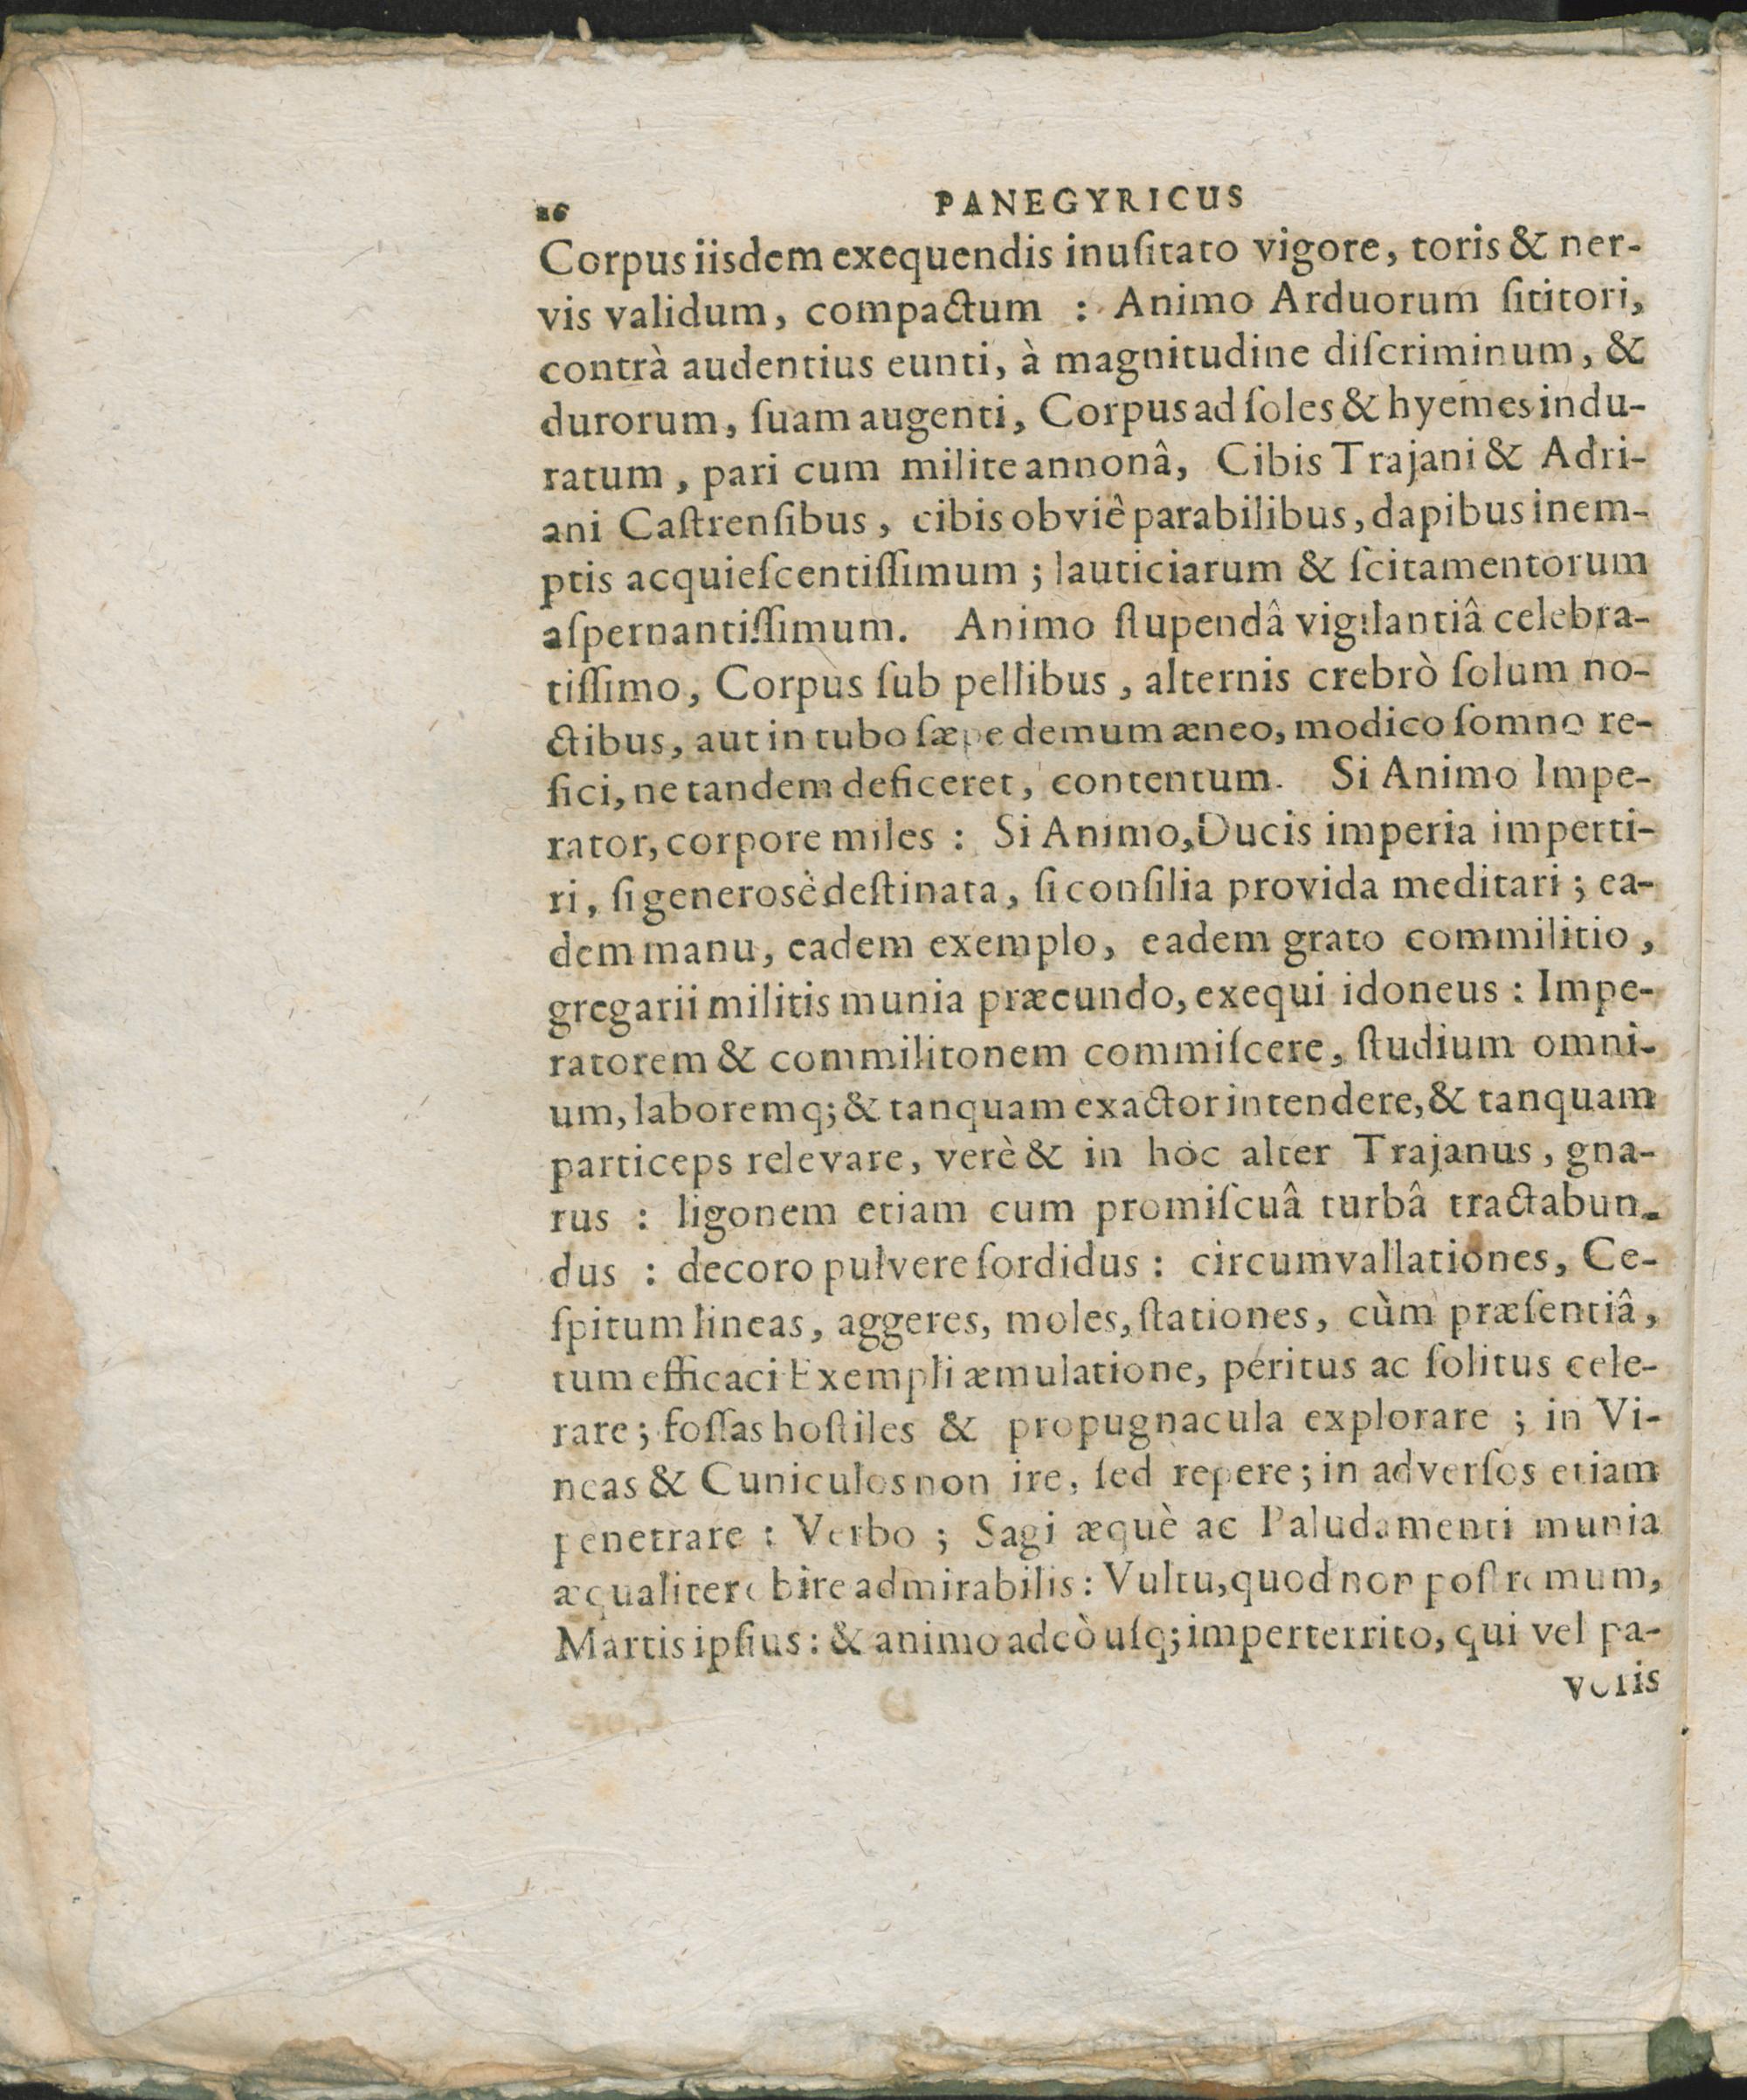 26 PANEGYRICUS
Corpus iisdem exequendis inuſitato vigore, toris & ner-
vis validum, compactum : Animo Arduorum ſititori,
contrà audentius eunti, à magnitudine diſcriminum, &
durorum, ſuam augenti, Corpus ad ſoles & hyemes indu-
ratum, pari cum milite annonâ, Cibis Trajani & Adri-
ani Caſtrenſibus, cibis obviê parabilibus, dapibus inem-
ptis acquieſcentiſſimum ; lauticiarum & ſcitamentorum
aſpernantiſſimum. Animo ſtupendâ vigilantiâ celebra-
tiſſimo, Corpus ſub pellibus, alternis crebrò ſolum no-
ctibus, aut in tubo ſæpe demum æneo, modico ſomno re-
fici, ne tandem deficeret, contentum. Si Animo Impe-
rator, corpore miles : Si Animo, Ducis imperia imperti-
ri, ſi generosè deſtinata, ſi conſilia provida meditari ; ea-
dem manu, eadem exemplo, eadem grato commilitio,
gregarii militis munia præeundo, exequi idoneus : Impe-
ratorem & commilitonem commiſcere, ſtudium omni-
um, laboremq; & tanquam exactor intendere, & tanquam
particeps relevare, verè & in hoc alter Trajanus, gna-
rus : ligonem etiam cum promiſcuâ turbâ tractabun-
dus : decoro pulvere ſordidus : circumvallationes, Ce-
ſpitum lineas, aggeres, moles, ſtationes, cùm præſentiâ,
tum efficaci Exempli æmulatione, peritus ac ſolitus cele-
rare ; foſſas hoſtiles & propugnacula explorare ; in Vi-
neas & Cuniculos non ire, ſed repere ; in adverſos etiam
penetrare : Verbo ; Sagi æquè ac Paludamenti munia
æqualiter obire admirabilis : Vultu, quod non poſtremum,
Martis ipſius : & animo adeò uſq; imperterrito, qui vel pa-
voris